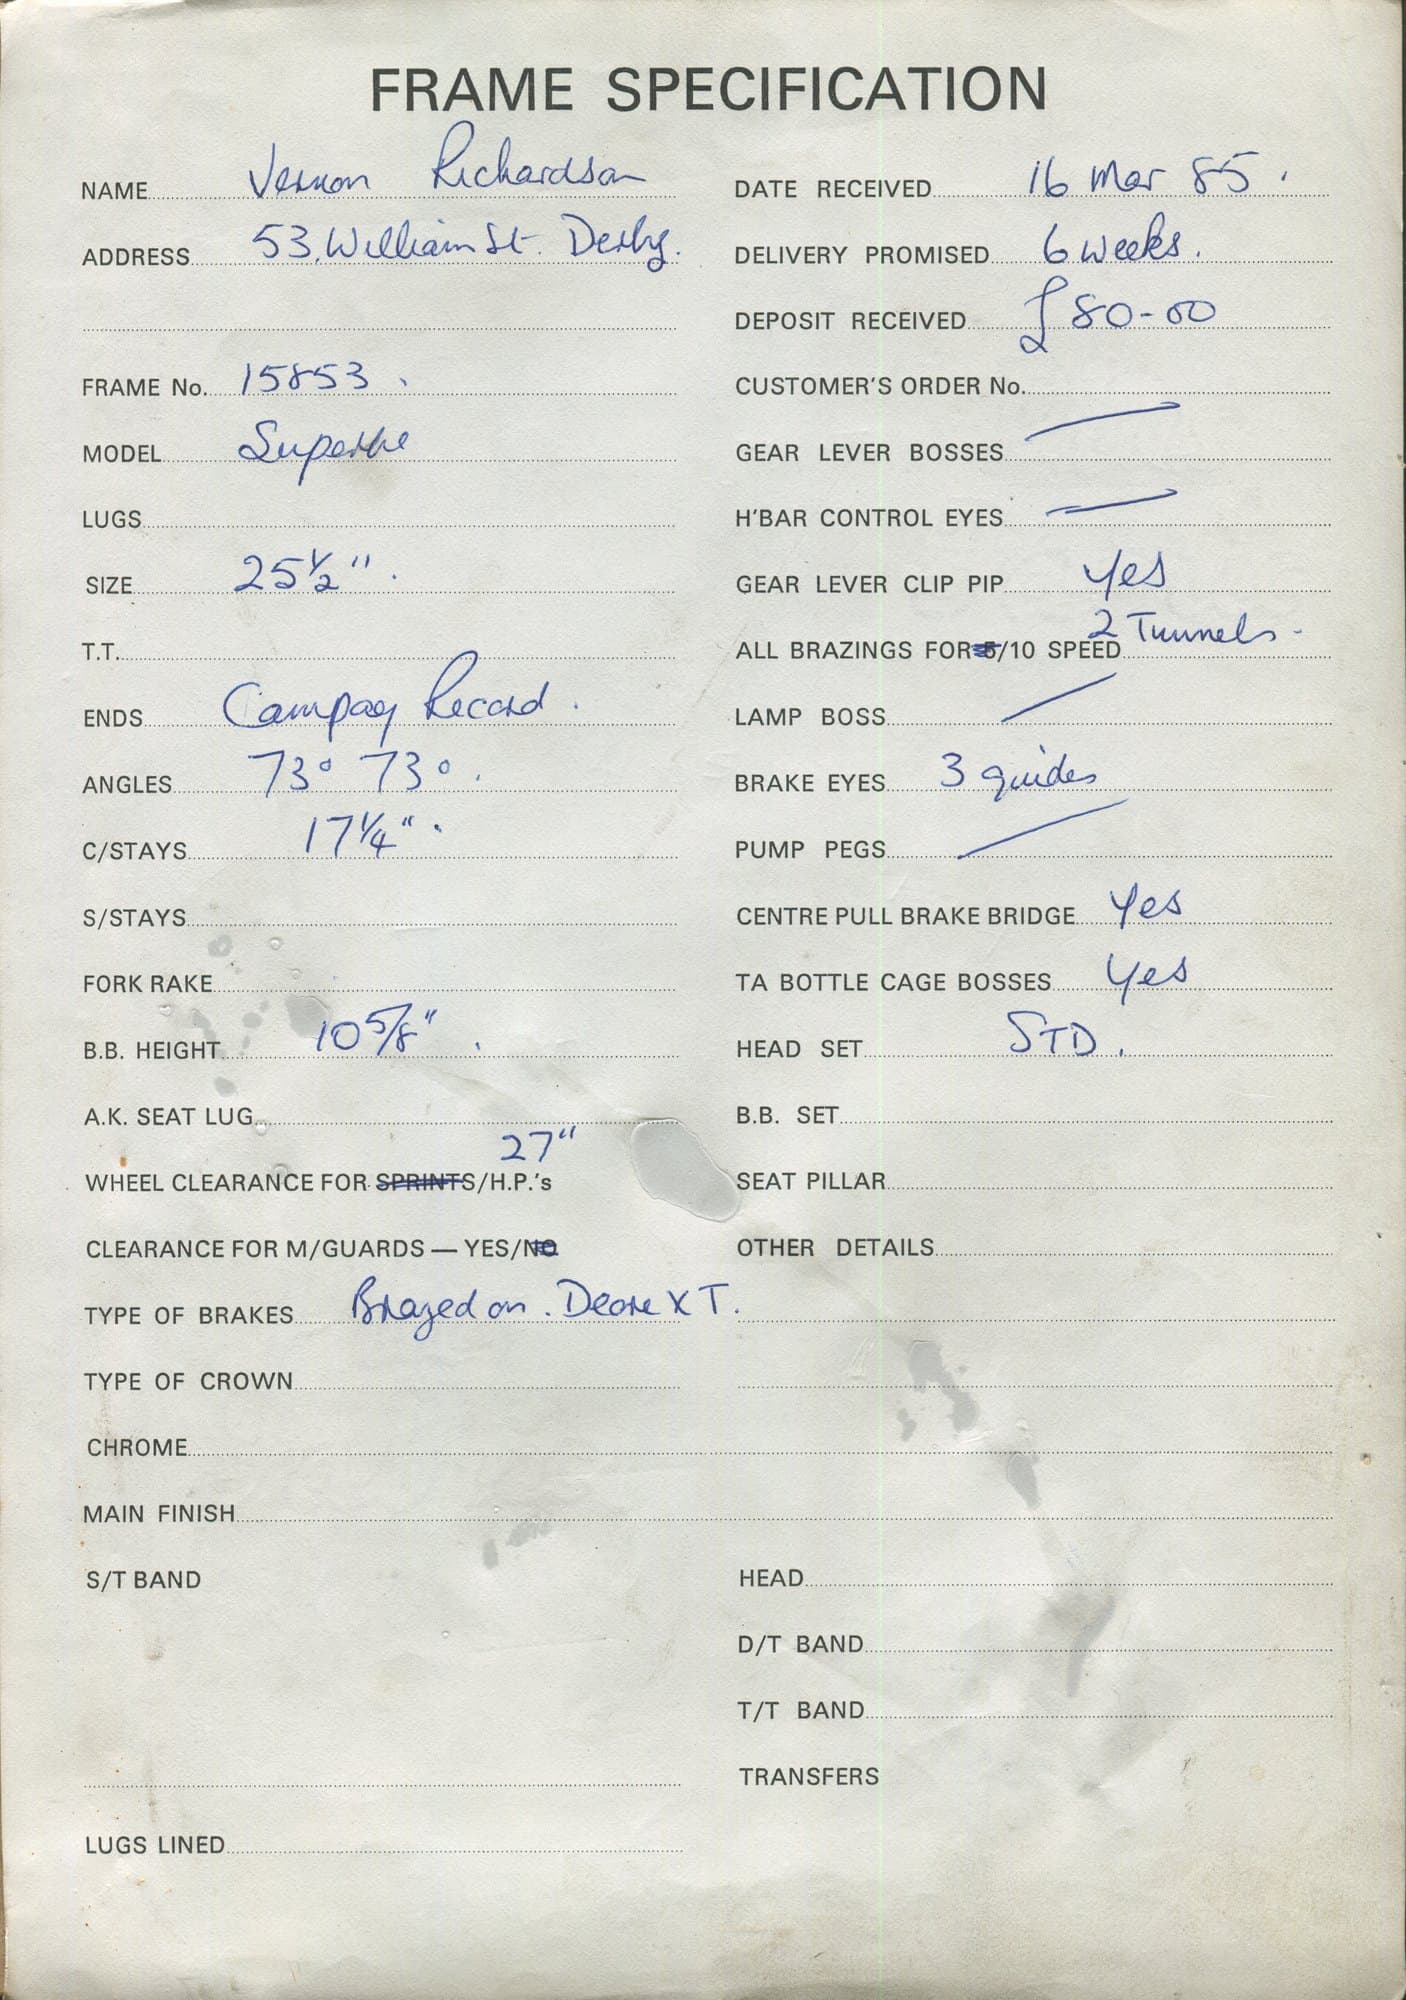 FRAME SPECIFICATION
NAME Vernon Richardson
ADDRESS 53, William St. Derby.
FRAME No. 15853.
MODEL Superbe
LUGS
SIZE 25½".
T.T.
ENDS Campag Record.
ANGLES 73° 73°.
C/STAYS 17¼".
S/STAYS
FORK RAKE
B.B. HEIGHT 10 5/8".
A.K. SEAT LUG
27"
WHEEL CLEARANCE FOR SPRINTS/H.P.'s
CLEARANCE FOR M/GUARDS — YES/NO
TYPE OF BRAKES Brazed on. Deore XT.
TYPE OF CROWN
CHROME
MAIN FINISH
S/T BAND
LUGS LINED
DATE RECEIVED 16 Mar 85.
DELIVERY PROMISED 6 weeks.
DEPOSIT RECEIVED £80-00
CUSTOMER'S ORDER No.
GEAR LEVER BOSSES
H'BAR CONTROL EYES
GEAR LEVER CLIP PIP Yes
ALL BRAZINGS FOR 5/10 SPEED 2 Tunnels.
LAMP BOSS
BRAKE EYES 3 guides
PUMP PEGS
CENTRE PULL BRAKE BRIDGE Yes
TA BOTTLE CAGE BOSSES Yes
HEAD SET STD.
B.B. SET
SEAT PILLAR
OTHER DETAILS
HEAD
D/T BAND
T/T BAND
TRANSFERS